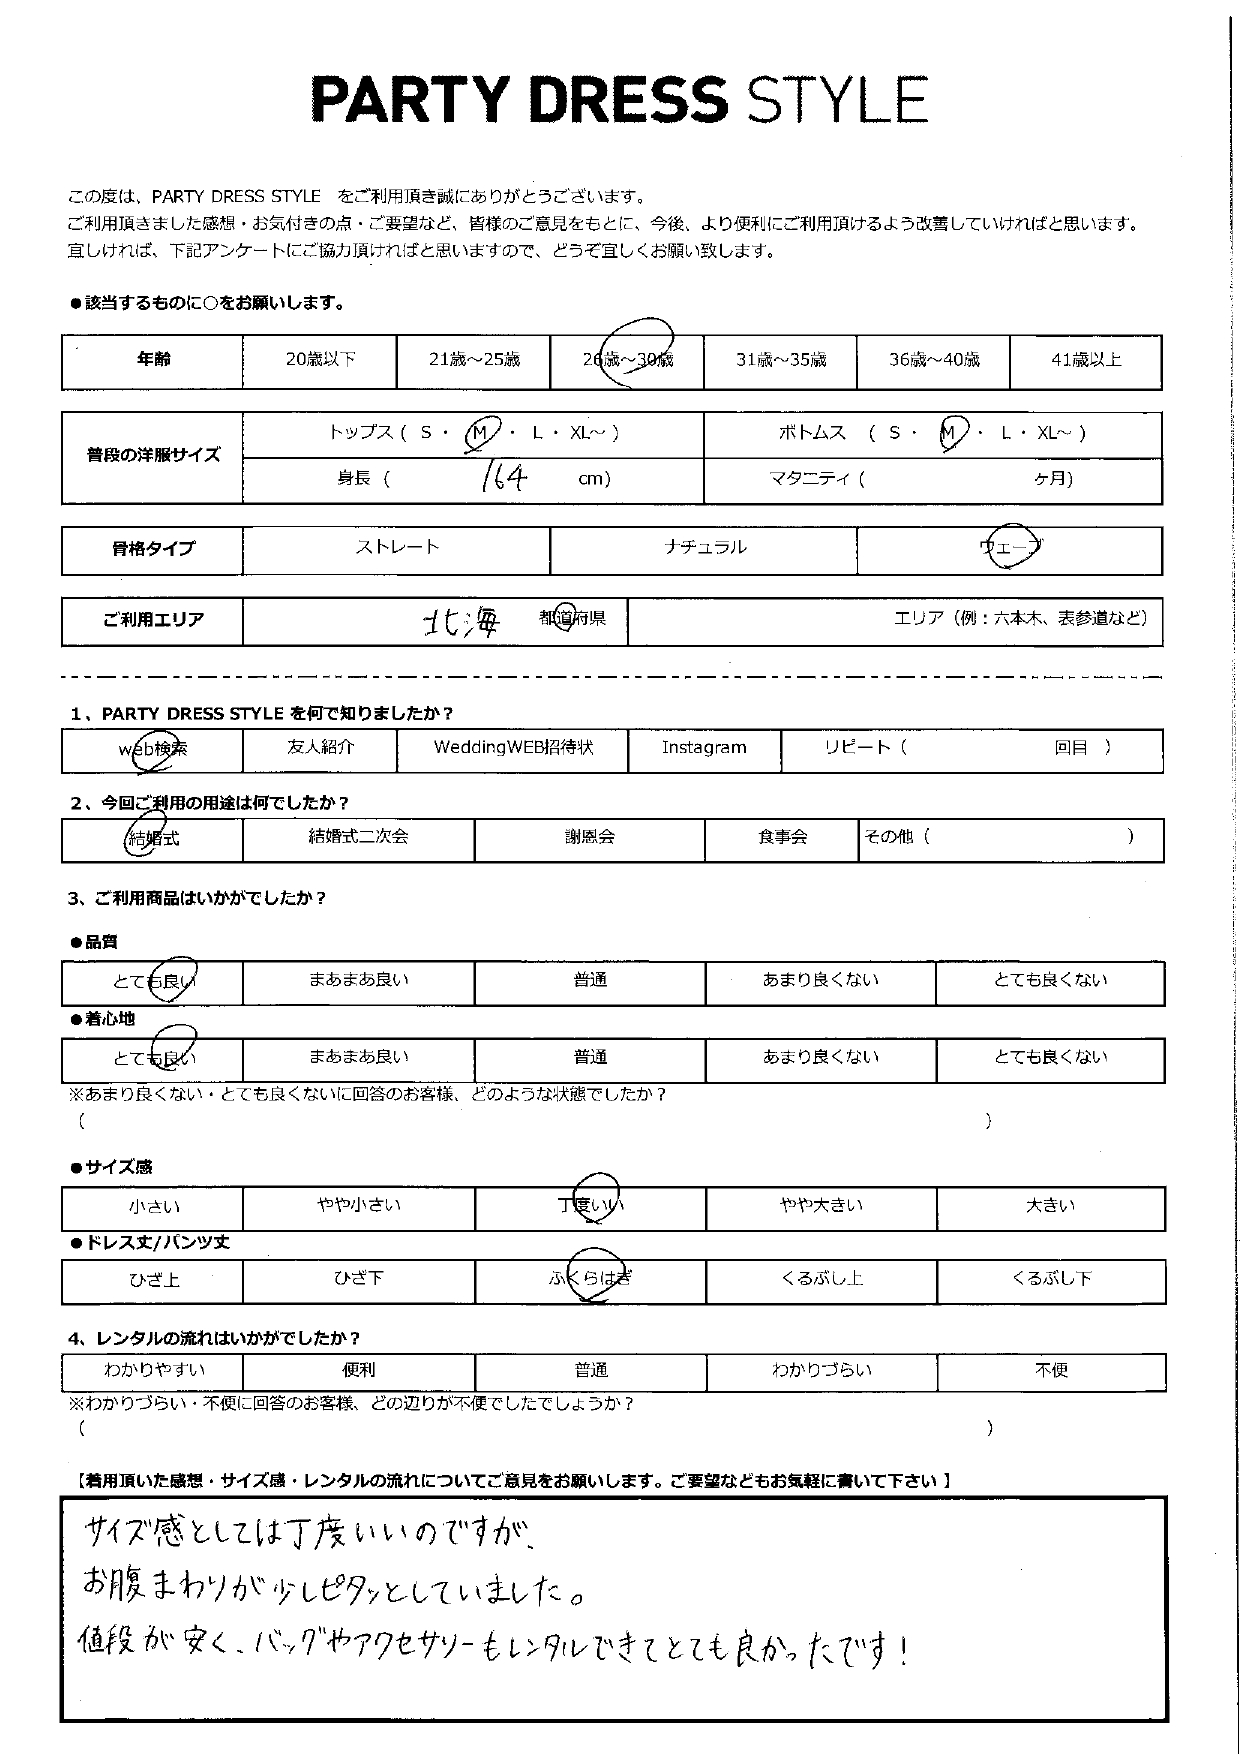 PARTY DRESS STYLE
この度は、PARTY DRESS STYLE　をご利用頂き誠にありがとうございます。
ご利用頂きました感想・お気付きの点・ご要望など、皆様のご意見をもとに、今後、より便利にご利用頂けるよう改善していければと思います。
宜しければ、下記アンケートにご協力頂ければと思いますので、どうぞ宜しくお願い致します。
●該当するものに〇をお願いします。
年齢 20歳以下 21歳～25歳 26歳～30歳 31歳～35歳 36歳～40歳 41歳以上
普段の洋服サイズ トップス ( S ・ M ・ L ・ XL～ ) ボトムス ( S ・ M ・ L ・ XL～ )
身長 ( 164 cm) マタニティ ( ヶ月)
骨格タイプ ストレート ナチュラル ウェーブ
ご利用エリア 北海 都道府県 エリア（例：六本木、表参道など）
1、PARTY DRESS STYLE を何で知りましたか？
web検索 友人紹介 WeddingWEB招待状 Instagram リピート（ 回目 ）
2、今回ご利用の用途は何でしたか？
結婚式 結婚式二次会 謝恩会 食事会 その他（ ）
3、ご利用商品はいかがでしたか？
●品質
とても良い まあまあ良い 普通 あまり良くない とても良くない
●着心地
とても良い まあまあ良い 普通 あまり良くない とても良くない
※あまり良くない・とても良くないに回答のお客様、どのような状態でしたか？
( )
●サイズ感
小さい やや小さい 丁度いい やや大きい 大きい
●ドレス丈/パンツ丈
ひざ上 ひざ下 ふくらはぎ くるぶし上 くるぶし下
4、レンタルの流れはいかがでしたか？
わかりやすい 便利 普通 わかりづらい 不便
※わかりづらい・不便に回答のお客様、どの辺りが不便でしたでしょうか？
( )
【着用頂いた感想・サイズ感・レンタルの流れについてご意見をお願いします。ご要望などもお気軽に書いて下さい 】
サイズ感としては丁度いいのですが、
お腹まわりが少しピタッとしていました。
値段が安く、バッグやアクセサリーもレンタルできてとても良かったです！